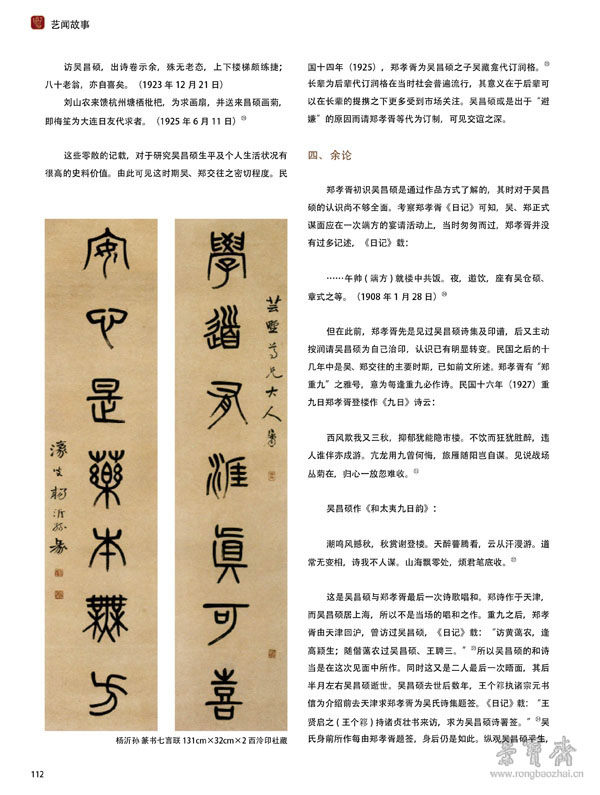 艺闻故事
访吴昌硕，出诗卷示余，殊无老态，上下楼梯颇练捷；
八十老翁，亦自喜矣。（1923 年 12 月 21 日）
刘山农来馈杭州塘栖枇杷，为求画扇，并送来昌硕画菊，
即梅笙为大连日友代求者。（1925 年 6 月 11 日）
这些零散的记载，对于研究吴昌硕生平及个人生活状况有
很高的史料价值。由此可见这时期吴、郑交往之密切程度。民
學道有涯真可喜
芸壂尊兄大人属
安心是藥本無方
濠叟楊沂孫篆
杨沂孙 篆书七言联 131cm×32cm×2 西泠印社藏
国十四年（1925），郑孝胥为吴昌硕之子吴藏龛代订润格。
长辈为后辈代订润格在当时社会普遍流行，其意义在于后辈可
以在长辈的提携之下更多受到市场关注。吴昌硕或是出于“避
嫌”的原因而请郑孝胥等代为订制，可见交谊之深。
四、余论
郑孝胥初识吴昌硕是通过作品方式了解的，其时对于吴昌
硕的认识尚不够全面。考察郑孝胥《日记》可知，吴、郑正式
谋面应在一次端方的宴请活动上，当时匆匆而过，郑孝胥并没
有过多记述，《日记》载：
……午帅 ( 端方 ) 就楼中共饭。夜，邀饮，座有吴仓硕、
章式之等。（1908 年 1 月 28 日）
但在此前，郑孝胥先是见过吴昌硕诗集及印谱，后又主动
按润请吴昌硕为自己治印，认识已有明显转变。民国之后的十
几年中是吴、郑交往的主要时期，已如前文所述。郑孝胥有“郑
重九”之雅号，意为每逢重九必作诗。民国十六年（1927）重
九日郑孝胥登楼作《九日》诗云：
西风欺我又三秋，抑郁犹能隐市楼。不饮而狂犹胜醉，违
人谁伴亦成游。亢龙用九曾何悔，旅雁随阳岂自谋。见说战场
丛菊在，归心一放忽难收。
吴昌硕作《和太夷九日韵》：
潮鸣风撼秋，秋赏谢登楼。天醉瞢腾看，云从汗漫游。道
常无变相，诗我不人谋。山海飘零处，烦君笔底收。
这是吴昌硕与郑孝胥最后一次诗歌唱和。郑诗作于天津，
而吴昌硕居上海，所以不是当场的唱和之作。重九之后，郑孝
胥由天津回沪，曾访过吴昌硕，《日记》载：“访黄蔼农，逢
高颖生；随偕蔼农过吴昌硕、王聘三。”所以吴昌硕的和诗
当是在这次见面中所作。同时这又是二人最后一次晤面，其后
半月左右吴昌硕逝世。吴昌硕去世后数年，王个簃执诸宗元书
信为介绍前去天津求郑孝胥为吴氏诗集题签。《日记》载：“王
贤启之 ( 王个簃 ) 持诸贞壮书来访，求为吴昌硕诗署签。”吴
氏身前所作每由郑孝胥题签，身后仍是如此。纵观吴昌硕平生，
112
荣宝斋
www.rongbaozhai.cn